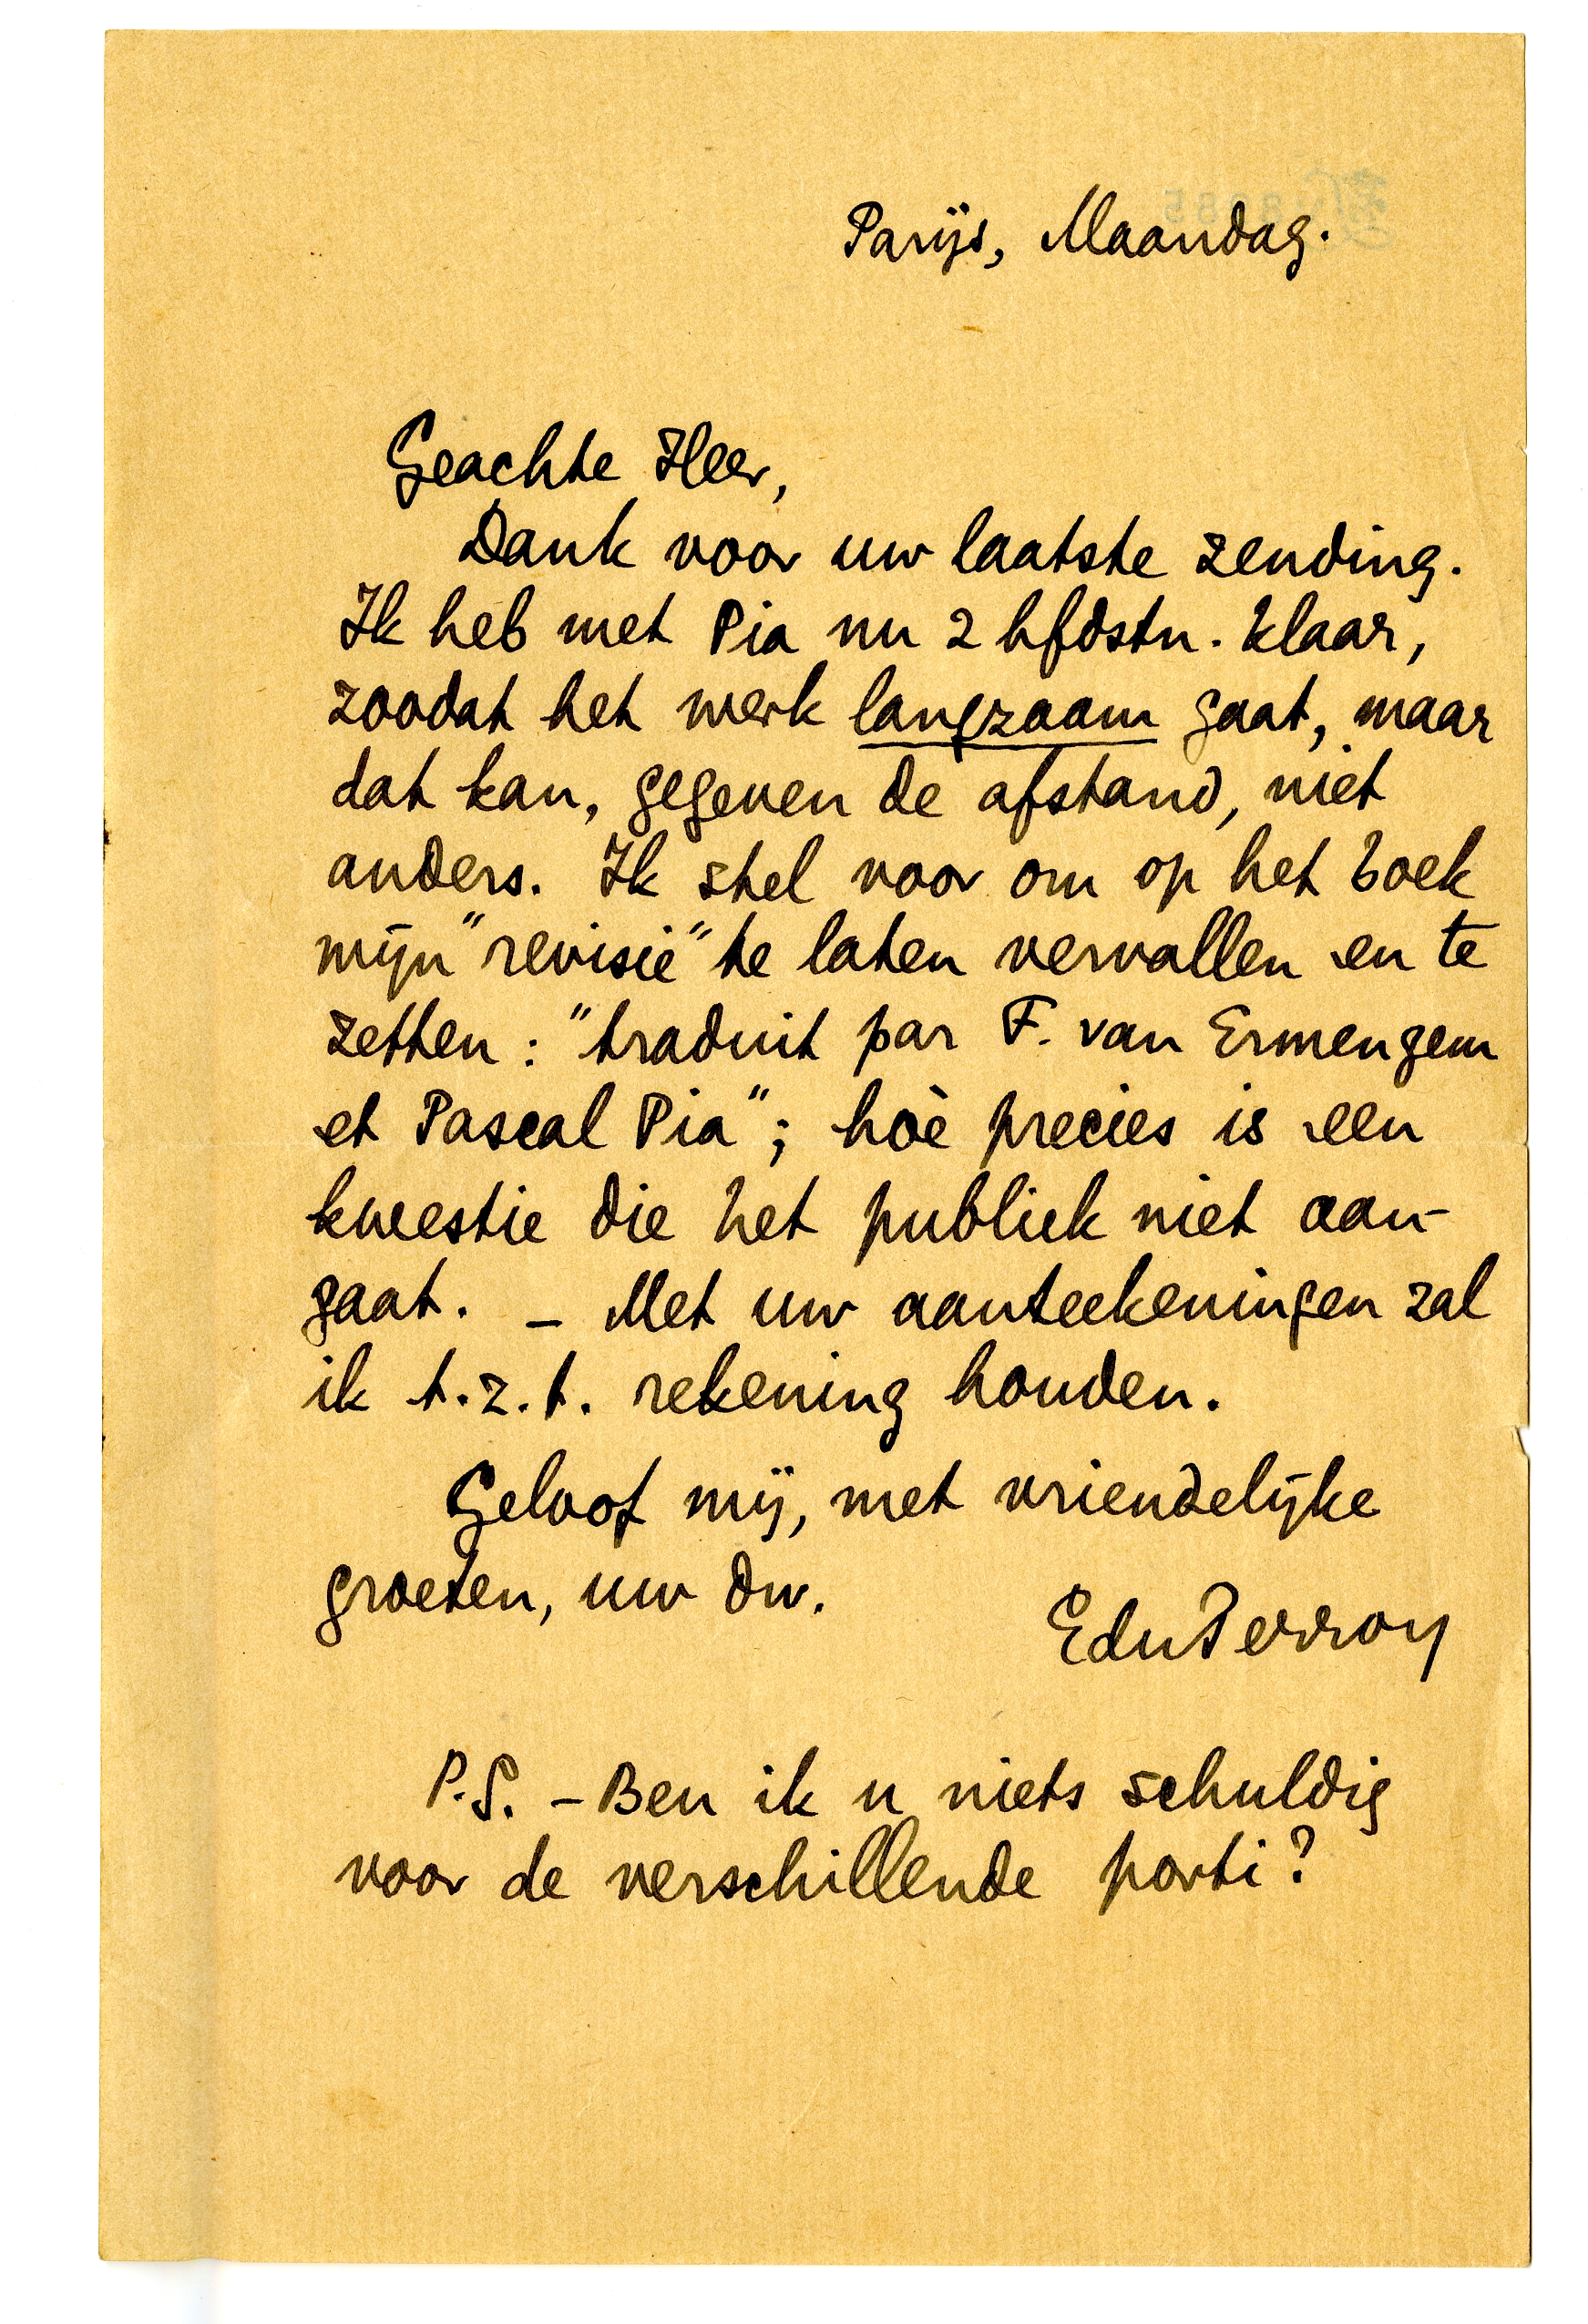 Parijs, Maandag.
Geachte Heer,
Dank voor uw laatste zending.
Ik heb met Pia nu 2 hfdstn. klaar,
zoodat het werk langzaam gaat, maar
dat kan, gegeven de afstand, niet
anders. Ik stel voor om op het boek
mijn "revisie" te laten vervallen en te
zetten: "traduit par F. van Ermengem
et Pascal Pia"; hoè precies is een
kwestie die het publiek niet aan-
gaat. – Met uw aanteekeningen zal
ik t.z.t. rekening houden.
Geloof mij, met vriendelijke
groeten, uw dw.
EduPerron
P.S. – Ben ik u niets schuldig
voor de verschillende porti?